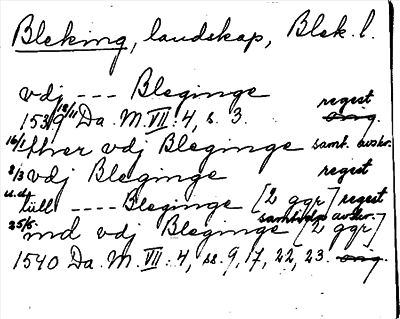 Bleking, landskap, Blek. l.
vdj --- Bleginge regest
1539 18/11 Da. M. VII: 4, s. 3. orig.
16/1 ffver vdj Bleginge samt. avskr.
8/3 vdj Bleginge regest
u.d. tüll ---- Bleginge [2 ggr] regest
25/5 ind vdj Bleginge [2 ggr] samtida avskr.
1540 Da. M. VII: 4, ss. 9, 17, 22, 23. orig.